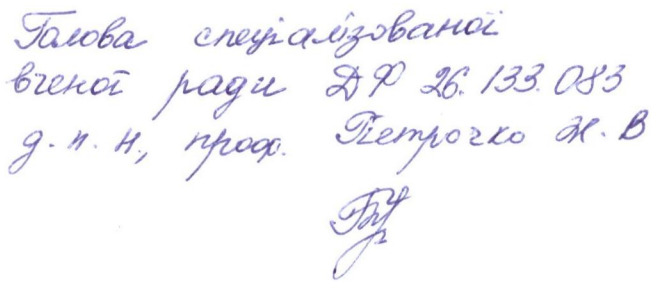 Голова спеціалізованої
вченої ради ДФ 26.133.083
д.п.н., проф. Петрочко Ж.В